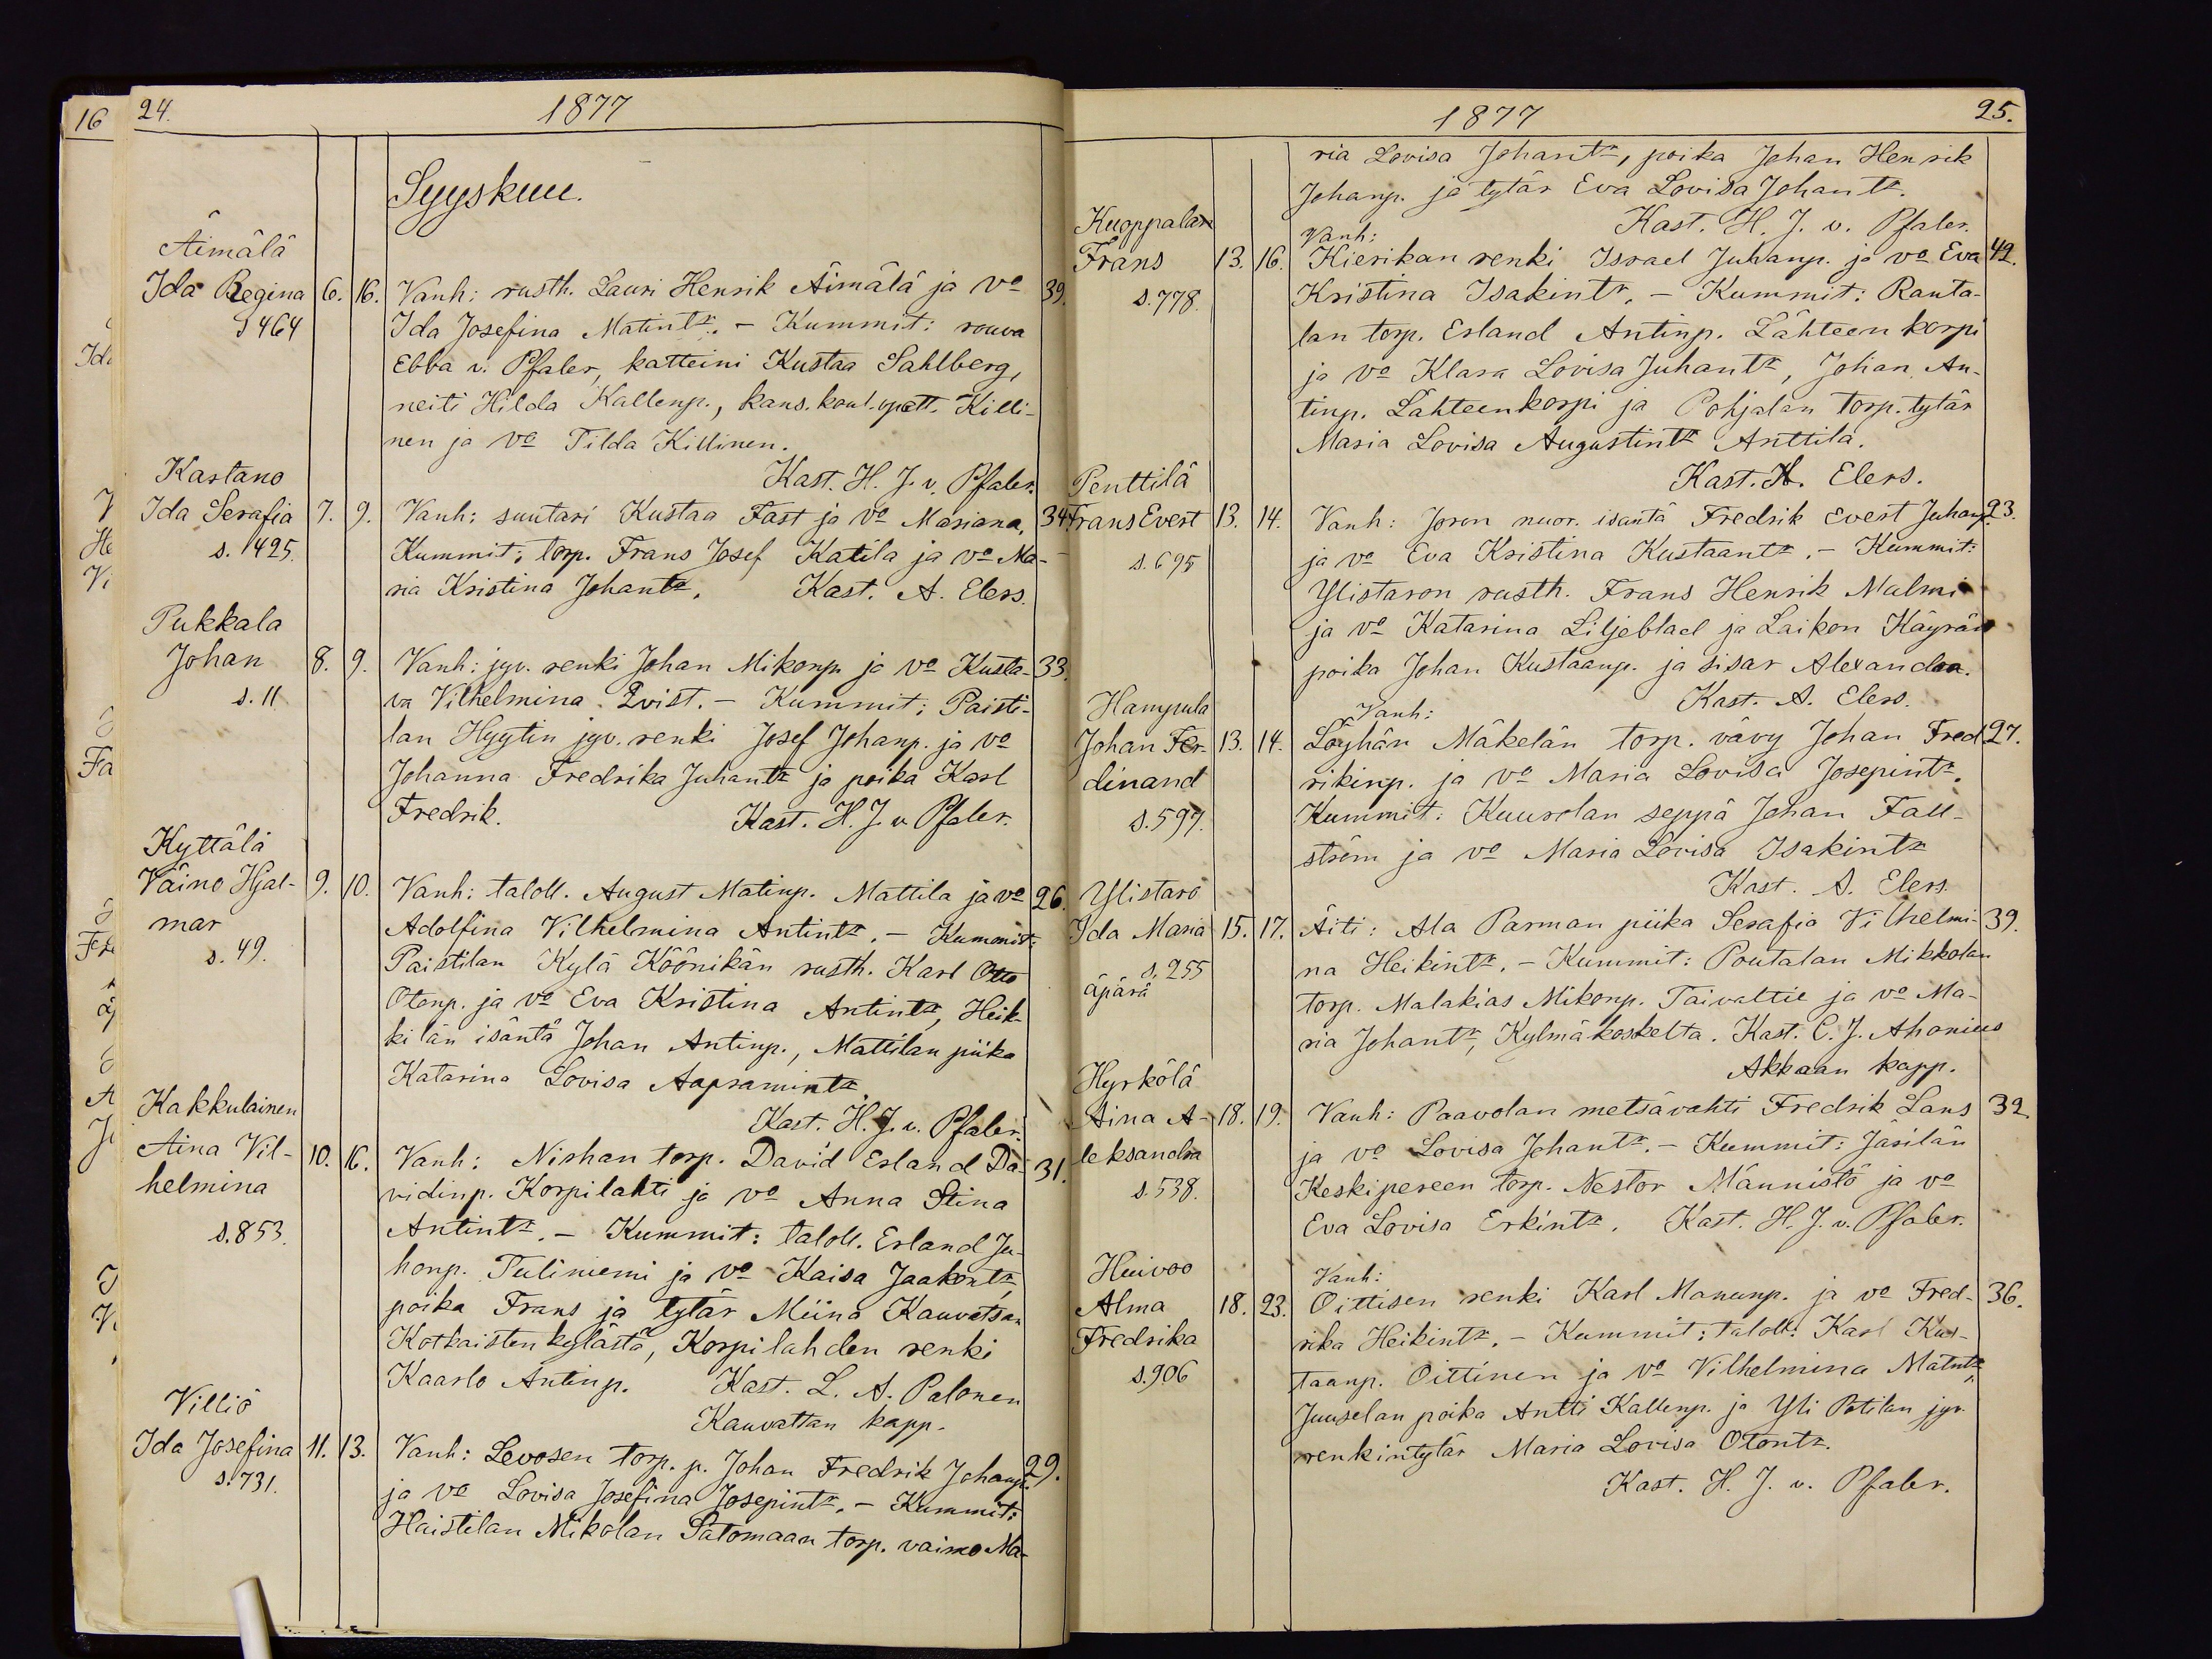 16
24.
1877
Syyskuu.
Äimälä
Ida Regina 6. 16. Vanh: rusth. Lauri Henrik Äimälä ja vo 39.
s 464
Ida Josefina Matintr. - Kummit: rouva
Ebba v. Pfaler, katteini Kustaa Sahlberg,
neiti Hilda Kallenp., kans. koul. opett. Killi-
nen ja vo Tilda Killinen.
Kast. H. J. v. Pfaler.
Kartano
Ida Serafia 7. 9. Vanh: suutari Kustaa Fast ja vo Mariana, 34
s. 1425.
Kummit: torp. Frans Josef Katila ja vo Ma-
ria Kristina Johantr. Kast. A. Elers.
Pukkala
Johan 8. 9. Vanh: jyv. renki Johan Mikonp. ja vo Kusta- 33.
s. 11
va Vilhelmina Qvist. - Kummit: Paisti-
lan Hyytin jyv. renki Josef Johanp. ja vo
Johanna Fredrika Juhantr ja poika Karl
Fredrik. Kast. H. J. v Pfaler.
Kyttälä
Väino Hjal- 9. 10. Vanh: taloll. August Matinp. Mattila ja vo 26.
mar
s. 49.
Adolfina Vilhelmina Antintr. - Kummit:
Paistilan Kylä Köönikän rusth. Karl Otto
Otonp. ja vo Eva Kristina Antintr, Heik-
kilän isäntä Johan Antinp., Mattilan piika
Katarina Lovisa Aapramintr.
Kast. H. J. v. Pfaler.
Kakkulainen
Aina Vil- 10. 16. Vanh: Nishan torp. David Erland Da- 31.
helmina
s. 853.
vidinp. Korpilahti ja vo Anna Stina
Antintr. - Kummit: taloll. Erland Ju-
honp. Tuliniemi ja vo Kaisa Jaakontr,
poika Frans ja tytär Miina Kauvatsan
Kotkaisten kylästä, Korpilahden renki
Kaarlo Antinp. Kast. L. A. Palonen
Kauvattan kapp.
Villiö
Ida Josefina 11. 13. Vanh: Levosen torp. p. Johan Fredrik Johanp. 29.
s. 731.
ja vo Lovisa Josefina Josepintr. - Kummit:
Haistilan Mikolan Satomaan torp. vaimo Ma-
1877
25.
ria Lovisa Johantr, poika Johan Henrik
Johanp. ja tytär Eva Lovisa Johantr.
Kast. H. J. v. Pfaler.
Kuoppala
Vanh:
Frans 13. 16. Kierikan renki Israel Juhanp. ja vo Eva 42.
s. 778.
Kristina Isakintr. - Kummit: Ranta-
lan torp. Erland Antinp. Lähteenkorpi
ja vo Klara Lovisa Juhantr, Johan An-
tinp. Lähteenkorpi ja Pohjalan torp. tytär
Maria Lovisa Augustintr Anttila.
Kast. A. Elers.
Penttilä
Frans Evert 13. 14. Vanh: Joron nuor. isäntä Fredrik Evert Juhanp. 23.
s. 695
ja vo Eva Kristina Kustaantr. - Kummit:
Ylistaron rusth. Frans Henrik Malmi
ja vo Katarina Liljeblad ja Laikon Käyrän
poika Johan Kustaanp. ja sisar Alexandra.
Kast. A. Elers.
Hampula
Vanh:
Johan Fer- 13. 14. Löyhän Mäkelän torp. vävy Johan Fred 27.
dinand
s. 597.
rikinp. ja vo Maria Lovisa Josepintr.
Kummit: Kuurolan seppä Johan Fall-
ström ja vo Maria Lovisa Isakintr
Kast. A. Elers.
Ylistaro
Ida Maria 15. 17. Äiti: Ala Parman piika Serafia Vilhelmi- 39.
s. 255
äpärä
na Heikintr. - Kummit: Poutalan Mikkolan
torp. Malakias Mikonp. Taivaltie ja vo Ma-
ria Johantr, Kylmäkoskelta. Kast. C. J. Ahonius
Akkaan kapp.
Hyrkölä
Aina A- 18. 19. Vanh: Paavolan metsävahti Fredrik Lans 32.
leksandra
s. 538.
ja vo Lovisa Johantr. - Kummit: Järilän
Keskipereen torp. Nestor Männistö ja vo
Eva Lovisa Erkintr. Kast. H. J. v. Pfaler.
Huivoo
Vanh:
Alma 18. 23. Oittisen renki Karl Manunp. ja vo Fred- 36.
Fredrika
s. 906
rika Heikintr. - Kummit: taloll: Karl Kus-
taanp. Oittinen ja vo Vilhelmina Matintr,
Juuselan poika Antti Kallenp. ja Yli Potilan jyv.
renkintytär Maria Lovisa Otontr.
Kast. H. J. v. Pfaler.